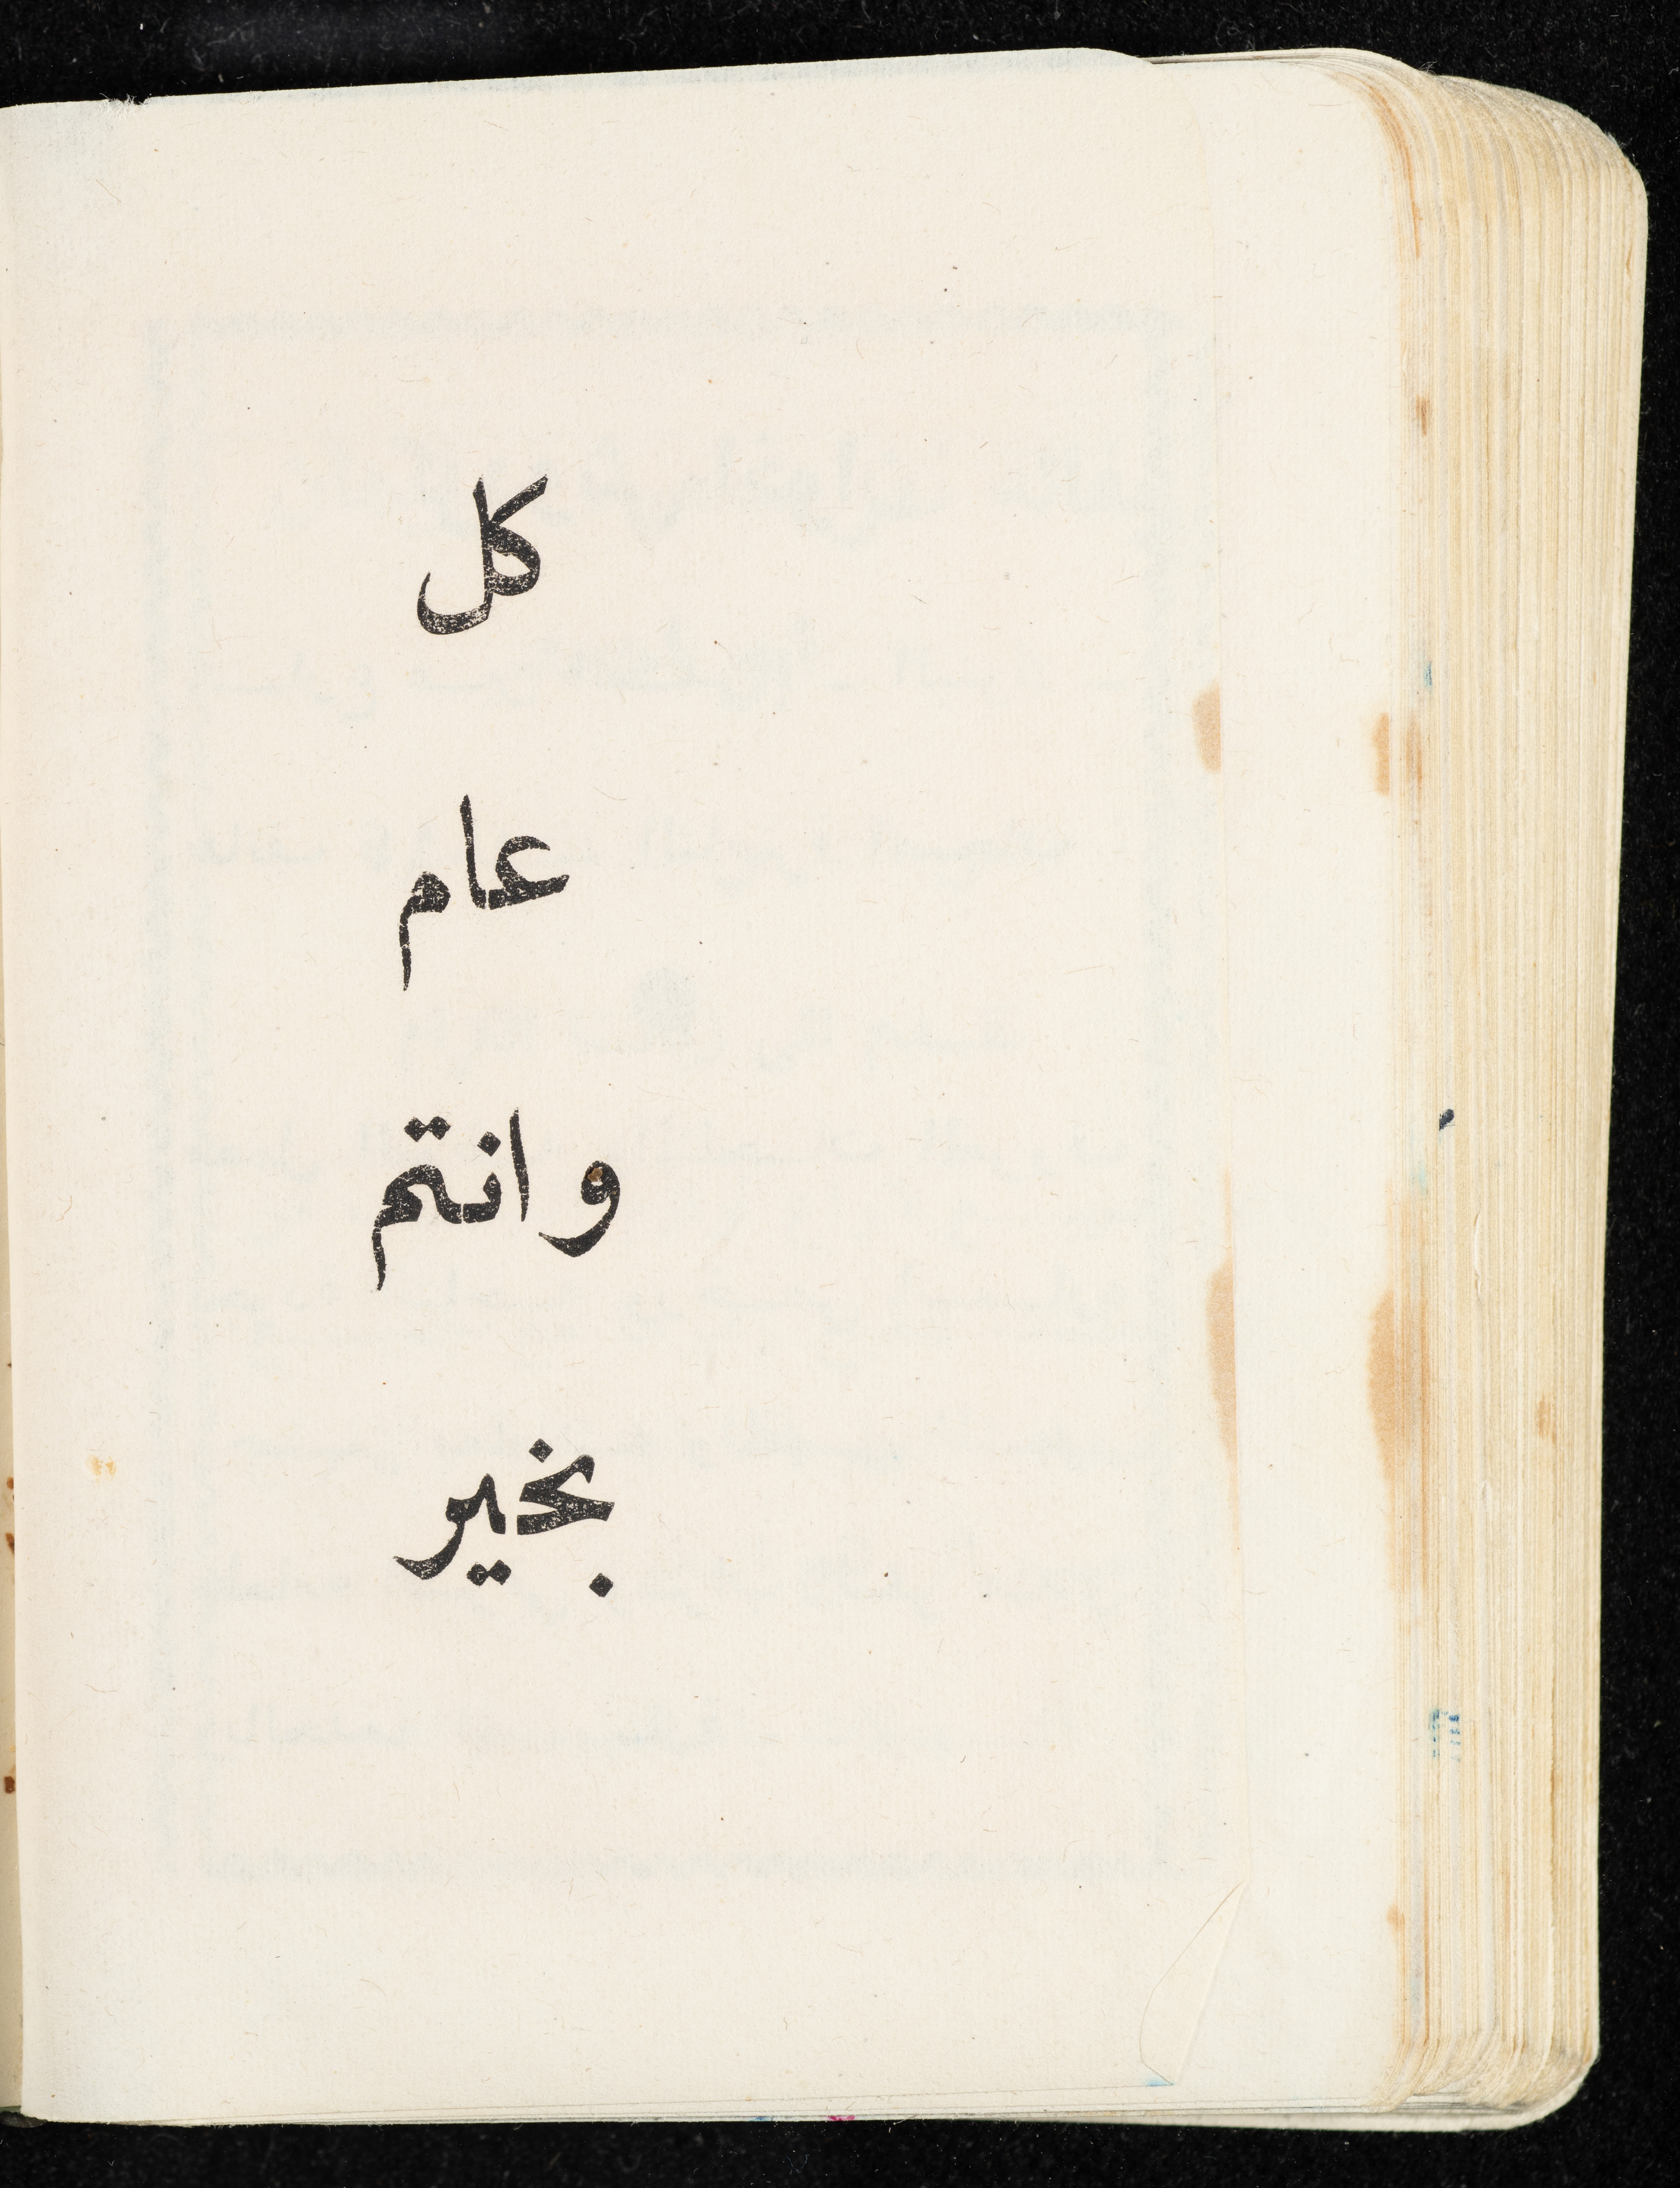 كل
عام
وانتم
بخير